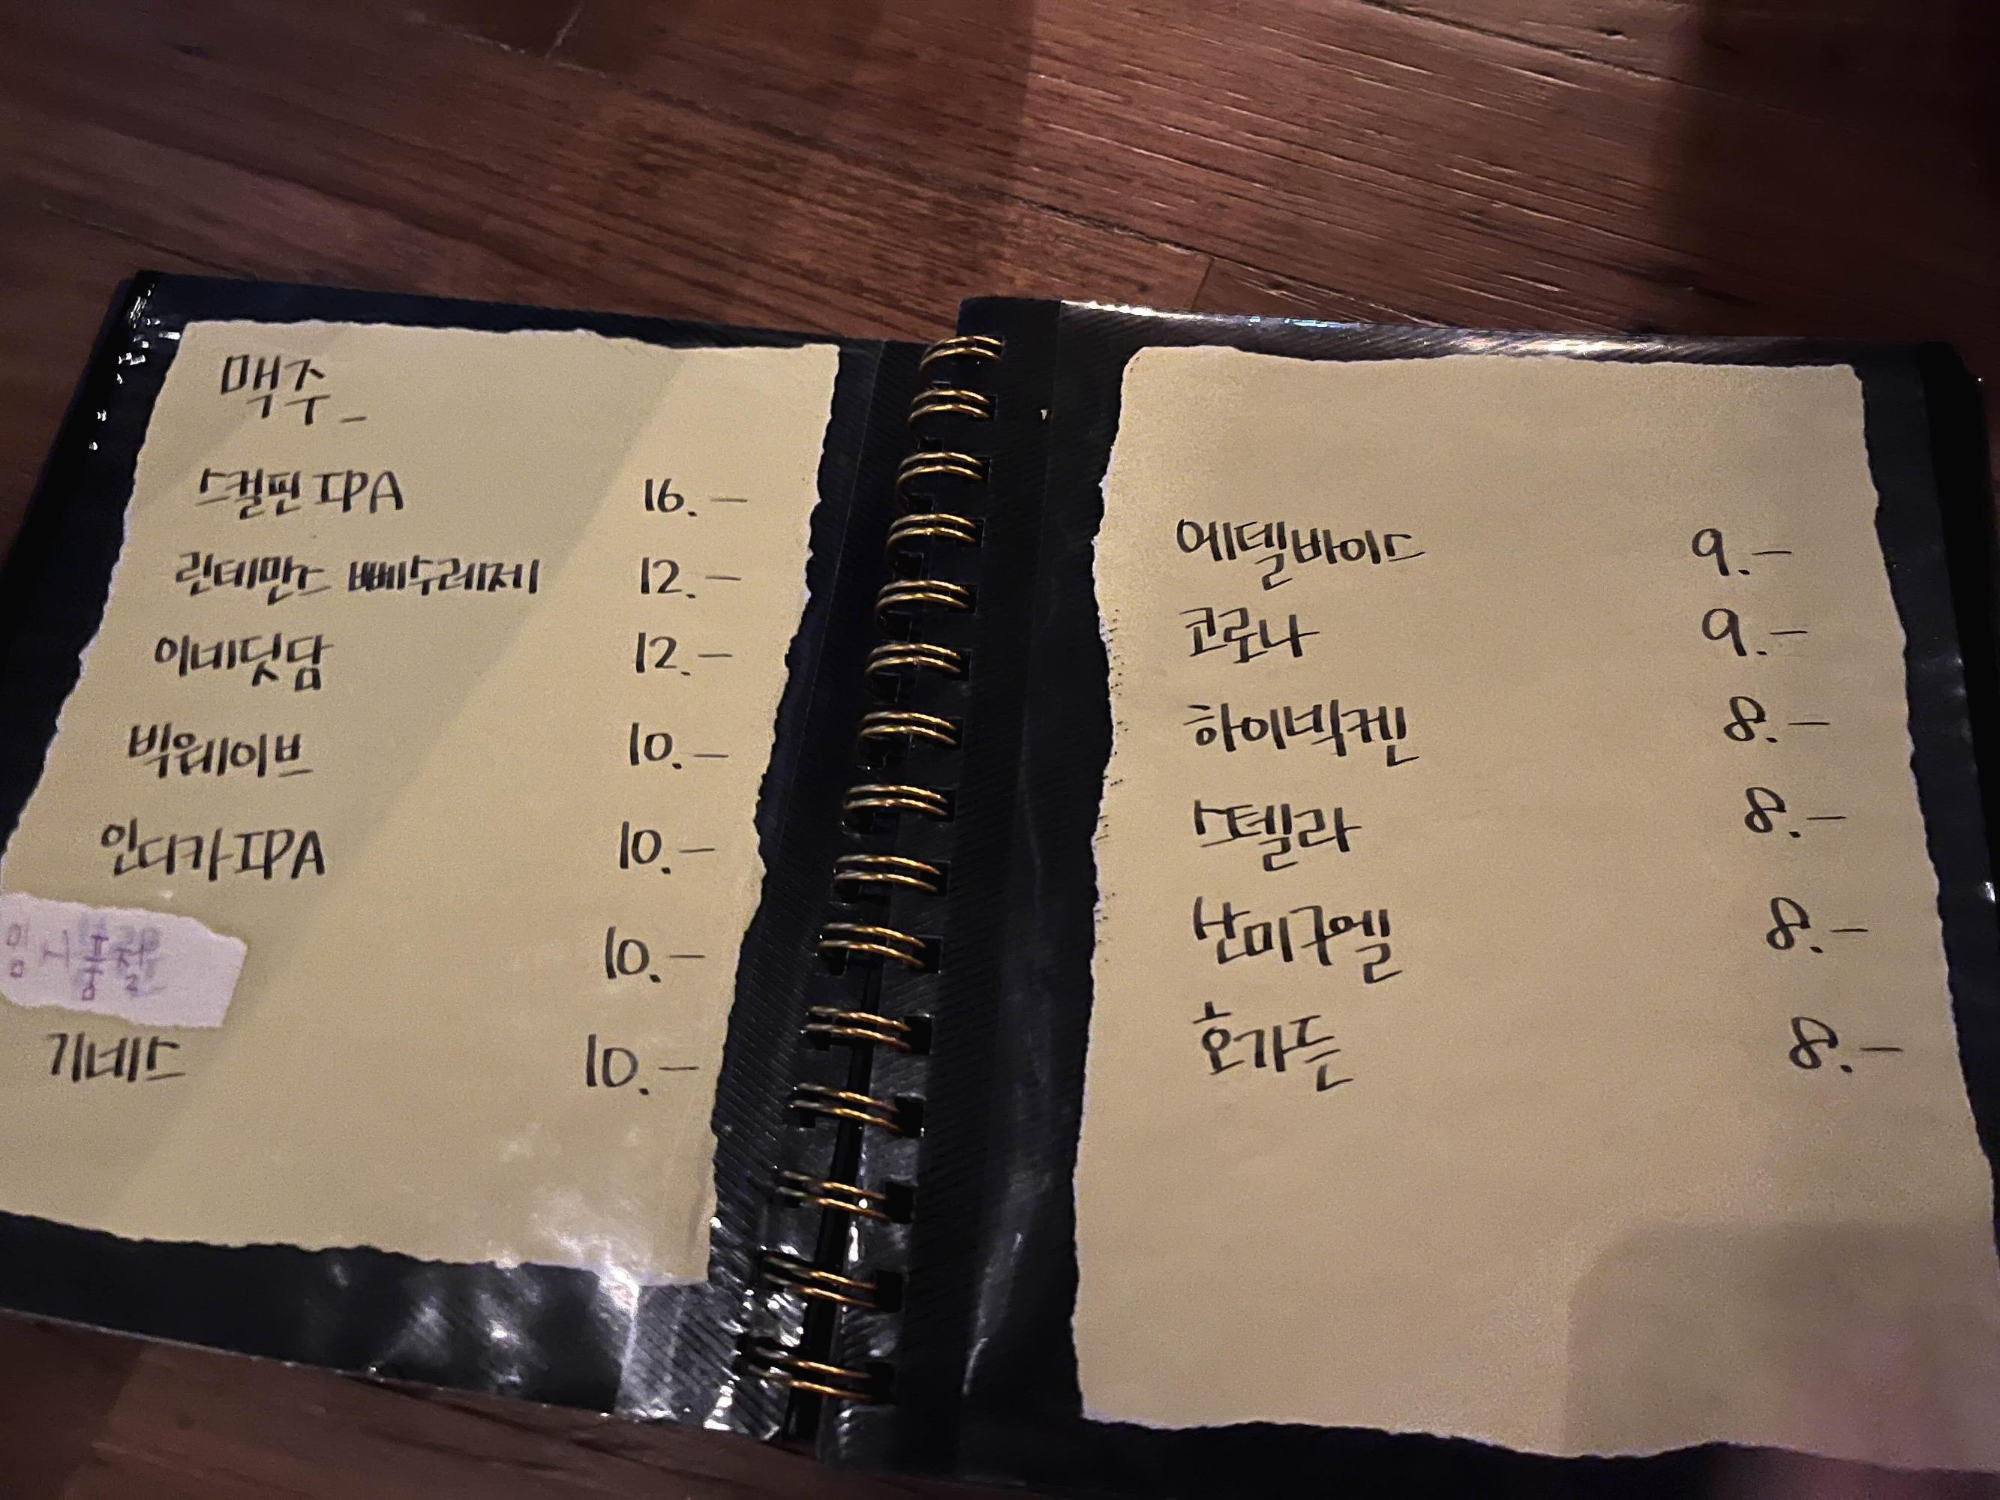 맥주_
스컬핀 IPA 16.-
린데만스 뻬슈레제 12.-
이네딧담 12.-
빅웨이브 10.-
인디카 IPA 10.-
임시품절 10.-
기네스 10.-
에델바이스 9.-
코로나 9.-
하이넥켄 8.-
스텔라 8.-
산미구엘 8.-
호가든 8.-